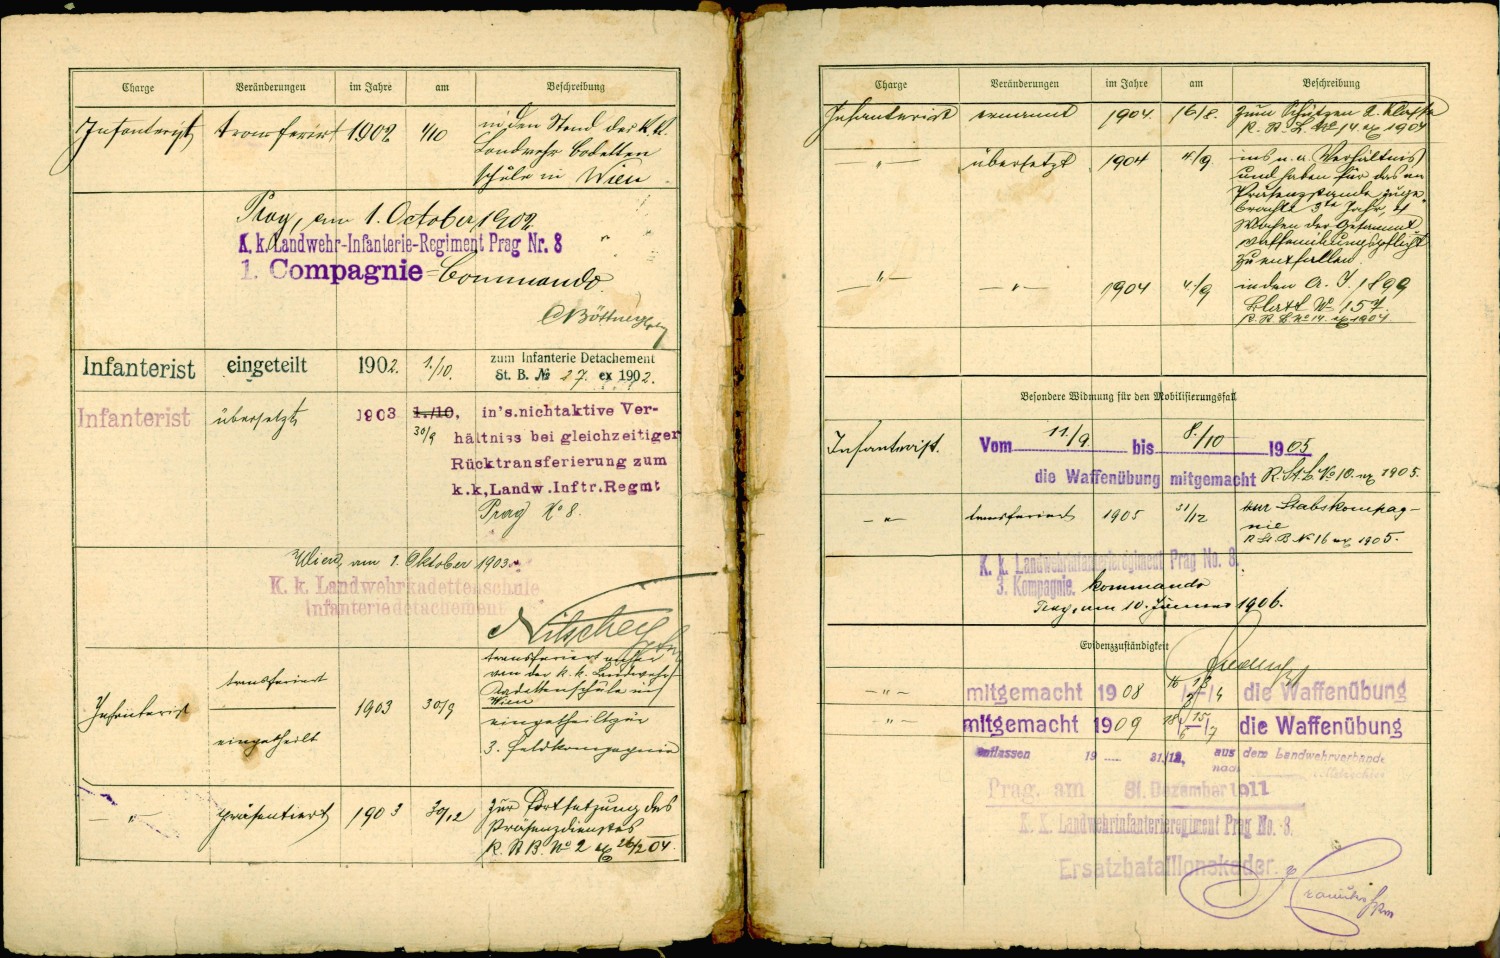 Charge Veränderungen im Jahre am Beschreibung
Infanterist transferirt 1902 1/10 in den Stand der K. k.
Landwehr Cadetten
schule in Wien
Prag, am 1. October 1902
K. k. Landwehr-Infanterie-Regiment Prag Nr. 8
1. Compagnie-Commando
Infanterist eingeteilt 1902. 1./10. zum Infanterie Detachement
St. B. No 27. ex 1902.
Infanterist übersetzt 1903 1./10. in's.nichtaktive Ver-
30/9 hältniss bei gleichzeitiger
Rücktransferierung zum
k.k.Landw.Inftr.Regmt
Prag No 8.
Wien, am 1. Oktober 1903
K. k. Landwehrkadettenschule
Infanteriedetachement
Nitsche
transferiert
von der k. k. Landwehr-
Cadettenschule in
Wien
Infanterist 1903 30/9
eingetheilt eingetheilt zur
3. Feldkompagnie
— " — präsentiert 1903 30/12 zur Fortsetzung des
Präsenzdienstes
R. St B. No 2 ex 26/2 04.
Charge Veränderungen im Jahre am Beschreibung
Infanterist ernannt 1904. 16/8. zum Schützen 2. Klasse
R. St. B. No 14 ex 1904
— " — übersetzt 1904 4./9. ins n. a. Verhältnis
und haben für das im
Präsenzstande zuge-
brachte 3te Jahr,
Wochen der Gesammt
waffenübungspflicht
zu entfallen.
— " — — " — 1904 4./9 in den A. J. 1899
Blatt No 157.
R. St B. No 14. ex 1904
Besondere Widmung für den Mobilisierungsfall
Infanterist. Vom 11./9. bis 8./10 1905
die Waffenübung mitgemacht R. St. B. No 10. ex 1905.
— " — transferiert 1905 31/12 zur Stabskompag-
nie
R St B No 16 ex 1905.
K. k. Landwehrinfanterieregiment Prag No. 8.
3. Kompagnie. kommando
Prag, am 10. Jänner 1906.
Evidenzzuständigkeit
— " — mitgemacht 1908 die Waffenübung
— " — mitgemacht 1909 die Waffenübung
entlassen 19 31./12, aus dem Landwehrverbande
nach
Prag. am 31. Dezember 1911
K. K. Landwehrinfanterieregiment Prag No. 8.
Ersatzbataillonskader.